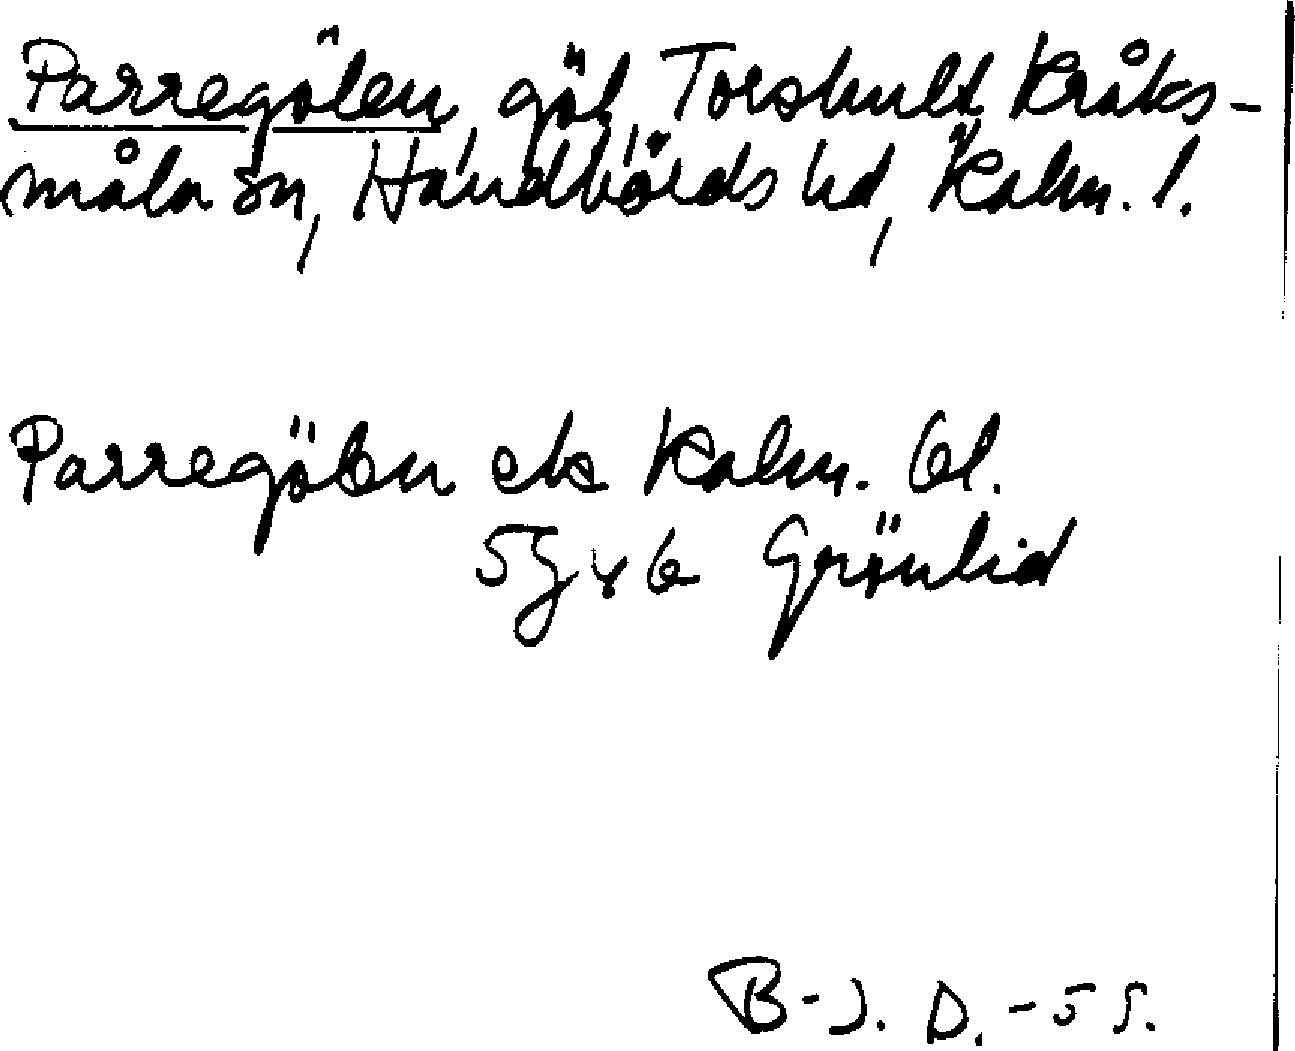 Parregölen, göl, Torshult, Kråks-
måla sn, Handbörds hd, Kalm. l.
Parregölen ek Kalm. bl.
5g v 6 Grönlid
B-J. D. -55.